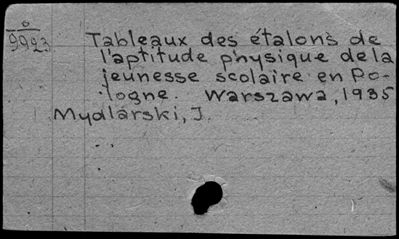 O
9923
Tableaux des étalons de
l'aptitude physique de la
jeunesse scolaire en Po-
logne. Warszawa, 1935
Mydlarski, J.